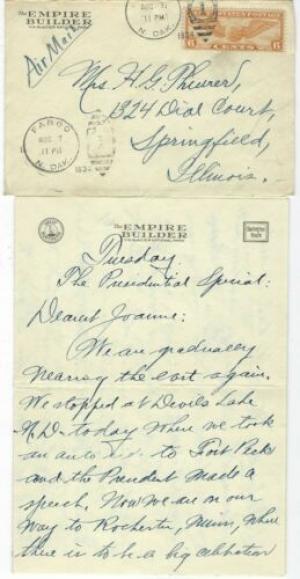 The EMPIRE
BUILDER
Air Mail
11 PM
N. DAK.
6 CENTS 6
1934
FARGO
11 PM
N. DAK.
1934
Mrs. H. G. Pheurer,
1324 Dial Court,
Springfield,
Illinois.
The EMPIRE
BUILDER
Tuesday.
The Presidential Special:
Dearest Joanne:
We are gradually
nearing the east again.
We stopped at Devils Lake
N.D. today where we took
an auto to Fort Peck
and the President made a
speech. Now we are on our
way to Rochester, Minn, where
there is to be a big celebration